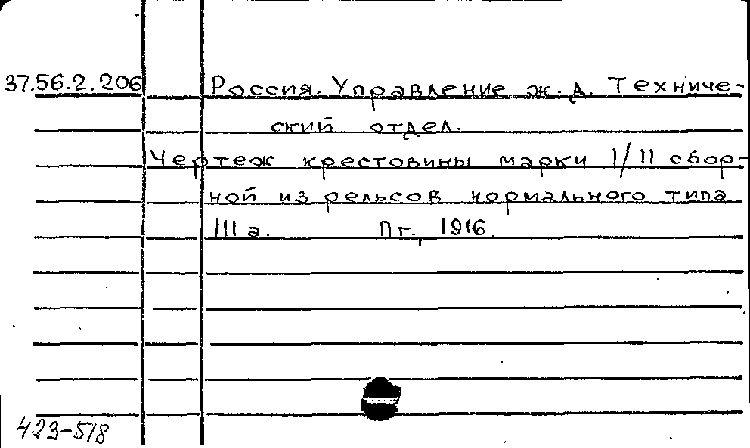 37.56.2.206 Россия. Управление ж.д. Техниче-
ский отдел.
Чертеж крестовины марки 1/11 сбор-
ной из рельсов нормального типа
III а. Пг, 1916.
423-518